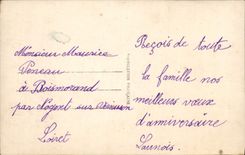 Monsieur Maurice
Peneau
à Boismorand
par Nogent sur Vernisson
Loiret
Reçois de toute
la famille nos
meilleurs vœux
d'anniversaire
Launois.